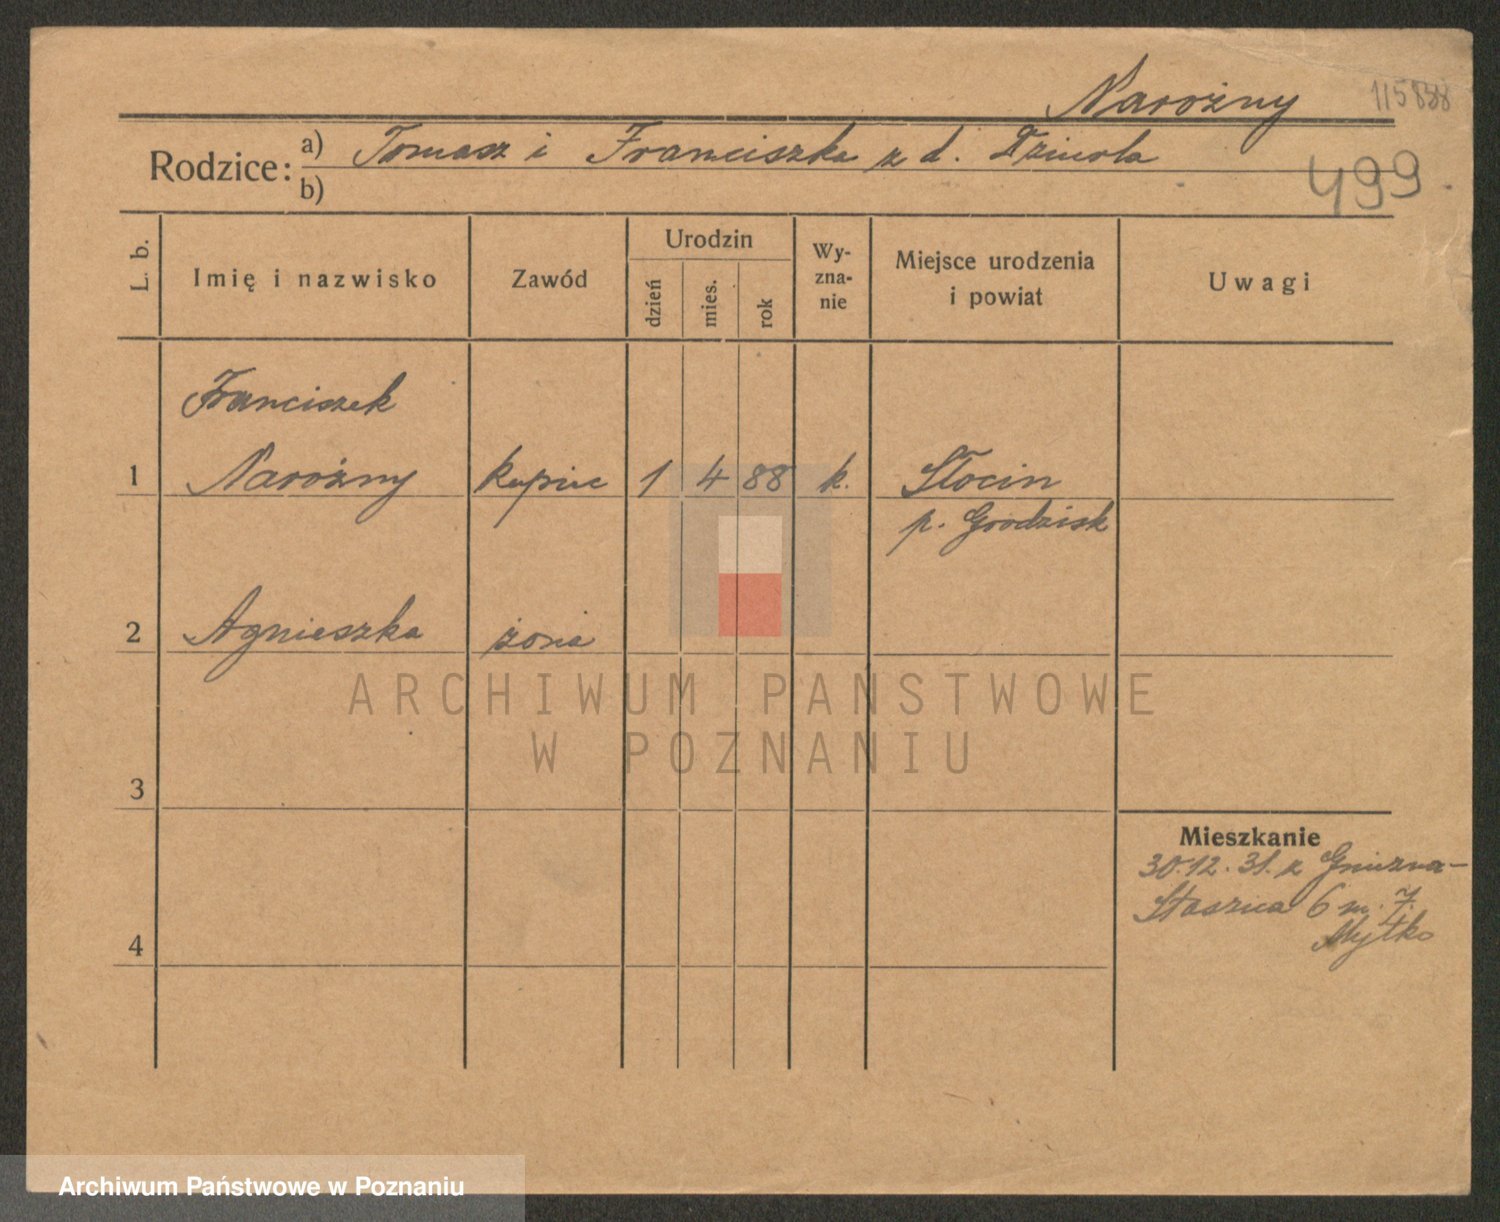 Narożny
115838
Rodzice: a) Tomasz i Franciszka z d.
b)
499
L. b.
Imię i nazwisko
Zawód
Urodzin
dzień
mies.
rok
Wy-
zna-
nie
Miejsce urodzenia
i powiat
Uwagi
Franciszek
1 Narożny kupiec 1 4 88 k. Słocin
p. Grodzisk
2 Agnieszka żona
ARCHIWUM PAŃSTWOWE
W POZNANIU
3
Mieszkanie
30.12.31. z Gniezna-
Staszica 6 m. 7.
Mytko
4
Archiwum Państwowe w Poznaniu